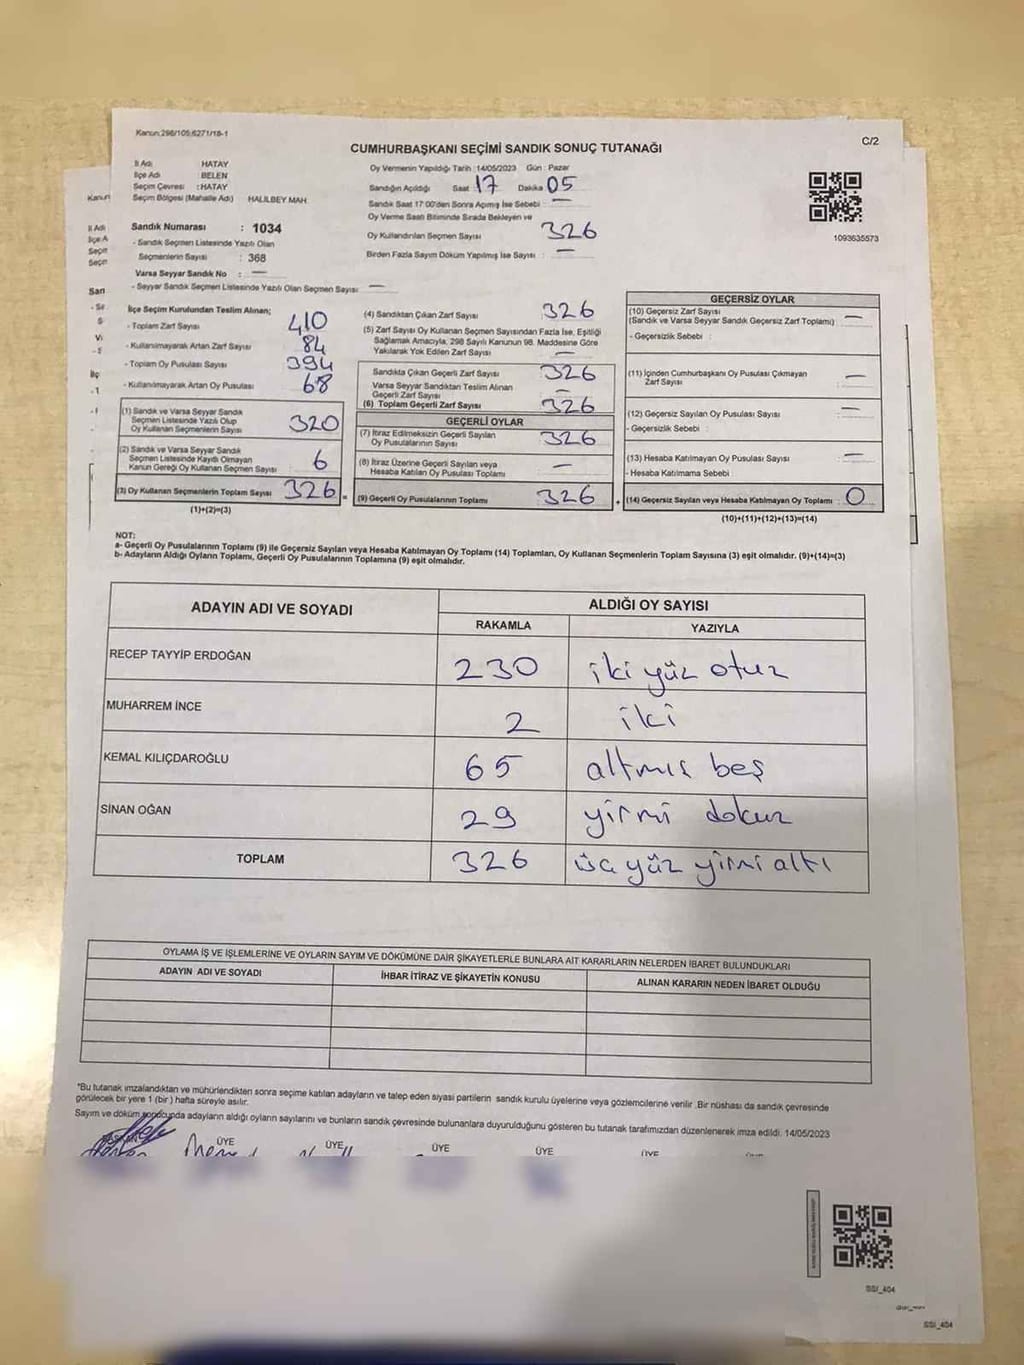 Kanun:298/105;6271/18-1
C/2
CUMHURBAŞKANI SEÇİMİ SANDIK SONUÇ TUTANAĞI
İl Adı : HATAY
İlçe Adı : BELEN
Seçim Çevresi : HATAY
Seçim Bölgesi (Mahalle Adı) HALİLBEY MAH.
Oy Vermenin Yapıldığı Tarih :14/05/2023 Gün : Pazar
Sandığın Açıldığı Saat : 17 Dakika : 05
Sandık Saat 17:00'den Sonra Açılmış İse Sebebi : —
Oy Verme Saati Bitiminde Sırada Bekleyen ve
Oy Kullandırılan Seçmen Sayısı : 326
Birden Fazla Sayım Döküm Yapılmış İse Sayısı : —
1093635573
Sandık Numarası : 1034
- Sandık Seçmen Listesinde Yazılı Olan
Seçmenlerin Sayısı : 368
Varsa Seyyar Sandık No : —
- Seyyar Sandık Seçmen Listesinde Yazılı Olan Seçmen Sayısı : —
İlçe Seçim Kurulundan Teslim Alınan;
- Toplam Zarf Sayısı 410
- Kullanılmayarak Artan Zarf Sayısı 84
- Toplam Oy Pusulası Sayısı 394
- Kullanılmayarak Artan Oy Pusulası 68
(1) Sandık ve Varsa Seyyar Sandık
Seçmen Listesinde Yazılı Olup
Oy Kullanan Seçmenlerin Sayısı 320
(2) Sandık ve Varsa Seyyar Sandık
Seçmen Listesinde Kaydı Olmayan
Kanun Gereği Oy Kullanan Seçmen Sayısı 6
(3) Oy Kullanan Seçmenlerin Toplam Sayısı 326 =
(1)+(2)=(3)
(4) Sandıktan Çıkan Zarf Sayısı 326
(5) Zarf Sayısı Oy Kullanan Seçmen Sayısından Fazla İse, Eşitliği
Sağlamak Amacıyla, 298 Sayılı Kanunun 98. Maddesine Göre
Yakılarak Yok Edilen Zarf Sayısı —
Sandıkta Çıkan Geçerli Zarf Sayısı 326
Varsa Seyyar Sandıktan Teslim Alınan
Geçerli Zarf Sayısı —
(6) Toplam Geçerli Zarf Sayısı 326
GEÇERLİ OYLAR
(7) İtiraz Edilmeksizin Geçerli Sayılan
Oy Pusulalarının Sayısı 326
(8) İtiraz Üzerine Geçerli Sayılan veya
Hesaba Katılan Oy Pusulası Toplamı —
(9) Geçerli Oy Pusulalarının Toplamı 326 +
GEÇERSİZ OYLAR
(10) Geçersiz Zarf Sayısı
(Sandık ve Varsa Seyyar Sandık Geçersiz Zarf Toplamı) —
- Geçersizlik Sebebi :
(11) İçinden Cumhurbaşkanı Oy Pusulası Çıkmayan
Zarf Sayısı —
(12) Geçersiz Sayılan Oy Pusulası Sayısı —
- Geçersizlik Sebebi :
(13) Hesaba Katılmayan Oy Pusulası Sayısı —
- Hesaba Katılmama Sebebi
(14) Geçersiz Sayılan veya Hesaba Katılmayan Oy Toplamı : 0
(10)+(11)+(12)+(13)=(14)
NOT:
a- Geçerli Oy Pusulalarının Toplamı (9) ile Geçersiz Sayılan veya Hesaba Katılmayan Oy Toplamı (14) Toplamları, Oy Kullanan Seçmenlerin Toplam Sayısına (3) eşit olmalıdır. (9)+(14)=(3)
b- Adayların Aldığı Oyların Toplamı, Geçerli Oy Pusulalarının Toplamına (9) eşit olmalıdır.
ADAYIN ADI VE SOYADI
ALDIĞI OY SAYISI
RAKAMLA YAZIYLA
RECEP TAYYİP ERDOĞAN 230 iki yüz otuz
MUHARREM İNCE 2 iki
KEMAL KILIÇDAROĞLU 65 altmış beş
SİNAN OĞAN 29 yirmi dokuz
TOPLAM 326 üç yüz yirmi altı
OYLAMA İŞ VE İŞLEMLERİNE VE OYLARIN SAYIM VE DÖKÜMÜNE DAİR ŞİKAYETLERLE BUNLARA AİT KARARLARIN NELERDEN İBARET BULUNDUKLARI
ADAYIN ADI VE SOYADI İHBAR İTİRAZ VE ŞİKAYETİN KONUSU ALINAN KARARIN NEDEN İBARET OLDUĞU
*Bu tutanak imzalandıktan ve mühürlendikten sonra seçime katılan adayların ve talep eden siyasi partilerin sandık kurulu üyelerine veya gözlemcilerine verilir .Bir nüshası da sandık çevresinde
görülecek bir yere 1 (bir ) hafta süreyle asılır.
Sayım ve döküm sonucunda adayların aldığı oyların sayılarını ve bunların sandık çevresinde bulunanlara duyurulduğunu gösteren bu tutanak tarafımızdan düzenlenerek imza edildi. 14/05/2023
BAŞKAN ÜYE ÜYE ÜYE ÜYE ÜYE
SSI_404
SSI_404